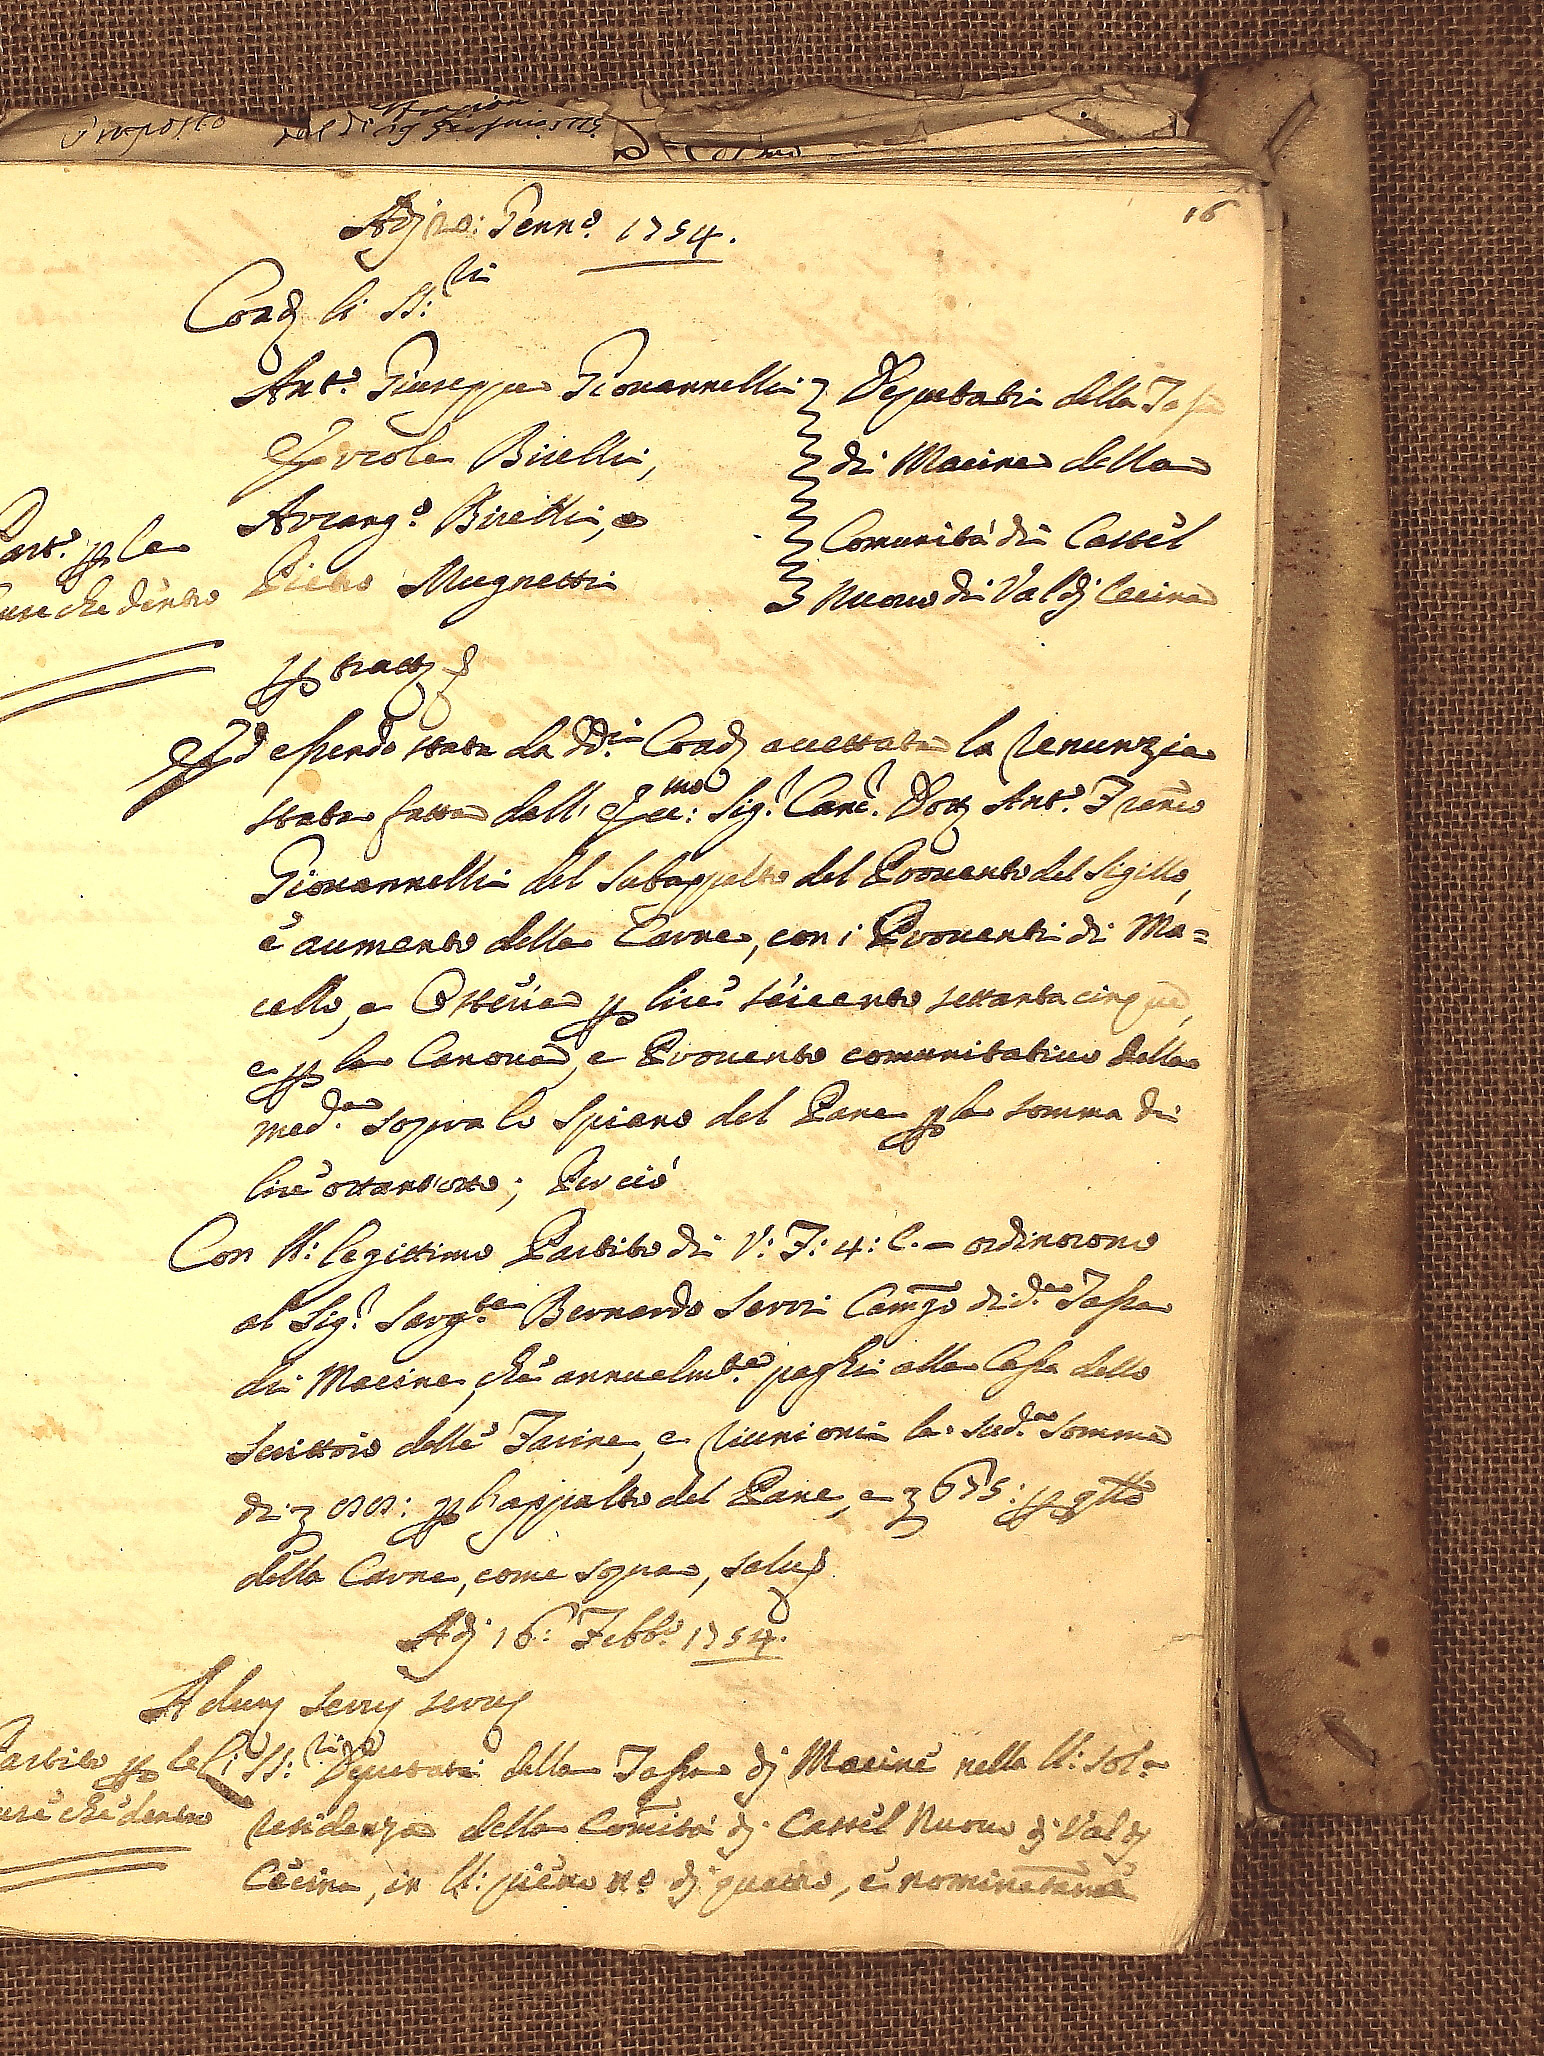 Proposto
16
Adj 20: Genn.o 1754.
Cong li SS.ri
Ant.o Giuseppe Giovannelli
Ercole Biselli,
Arcang.o Biselli, e
Pietro Mugnetti
Deputati della Tassa
di Macine della
Comunità di Castel
Nuovo di Val dj Cecina
Part.o p le
cause che dentro
p tratt
Ed essendo stata da dd.i Cong accettata la renunzia
stata fatta dall' Ecc:mo Sig.r Canc.r Dott Ant.o Franc.o
Giovannelli del Subappalto del Provento del Sigillo,
è aumento della Carne, con i Proventi di Ma=
cello, e Osteria p lire seicento settanta cinque,
e p la Canova, e Provento comunitativo della
med.ma sopra lo Spiano del Pane p la somma di
lire ottantotto; Perciò
Con ll: legittimo Partito di V: F: 4: C. = ordinorono
al Sig.r Serg.te Bernardo Serri Camgo di d.a Tassa
di Macine, che annualm.te paghi alla Cassa dello
Scrittoio delle Farine, e riunioni la sud.a somma
di p l'appalto del Pane, e 675: p qllo
della Carne, come sopra, salu
Adj 16: Febb.o 1754.
Adun serv serv
Partito p le
cause che dentro
li SS:ri Deputati della Tassa dj Macine nella ll: sol.a
residenza della Comità dj Castel Nuovo dj Val dj
Cecina, in ll: pieno n.o dj quattro, e nominatamte